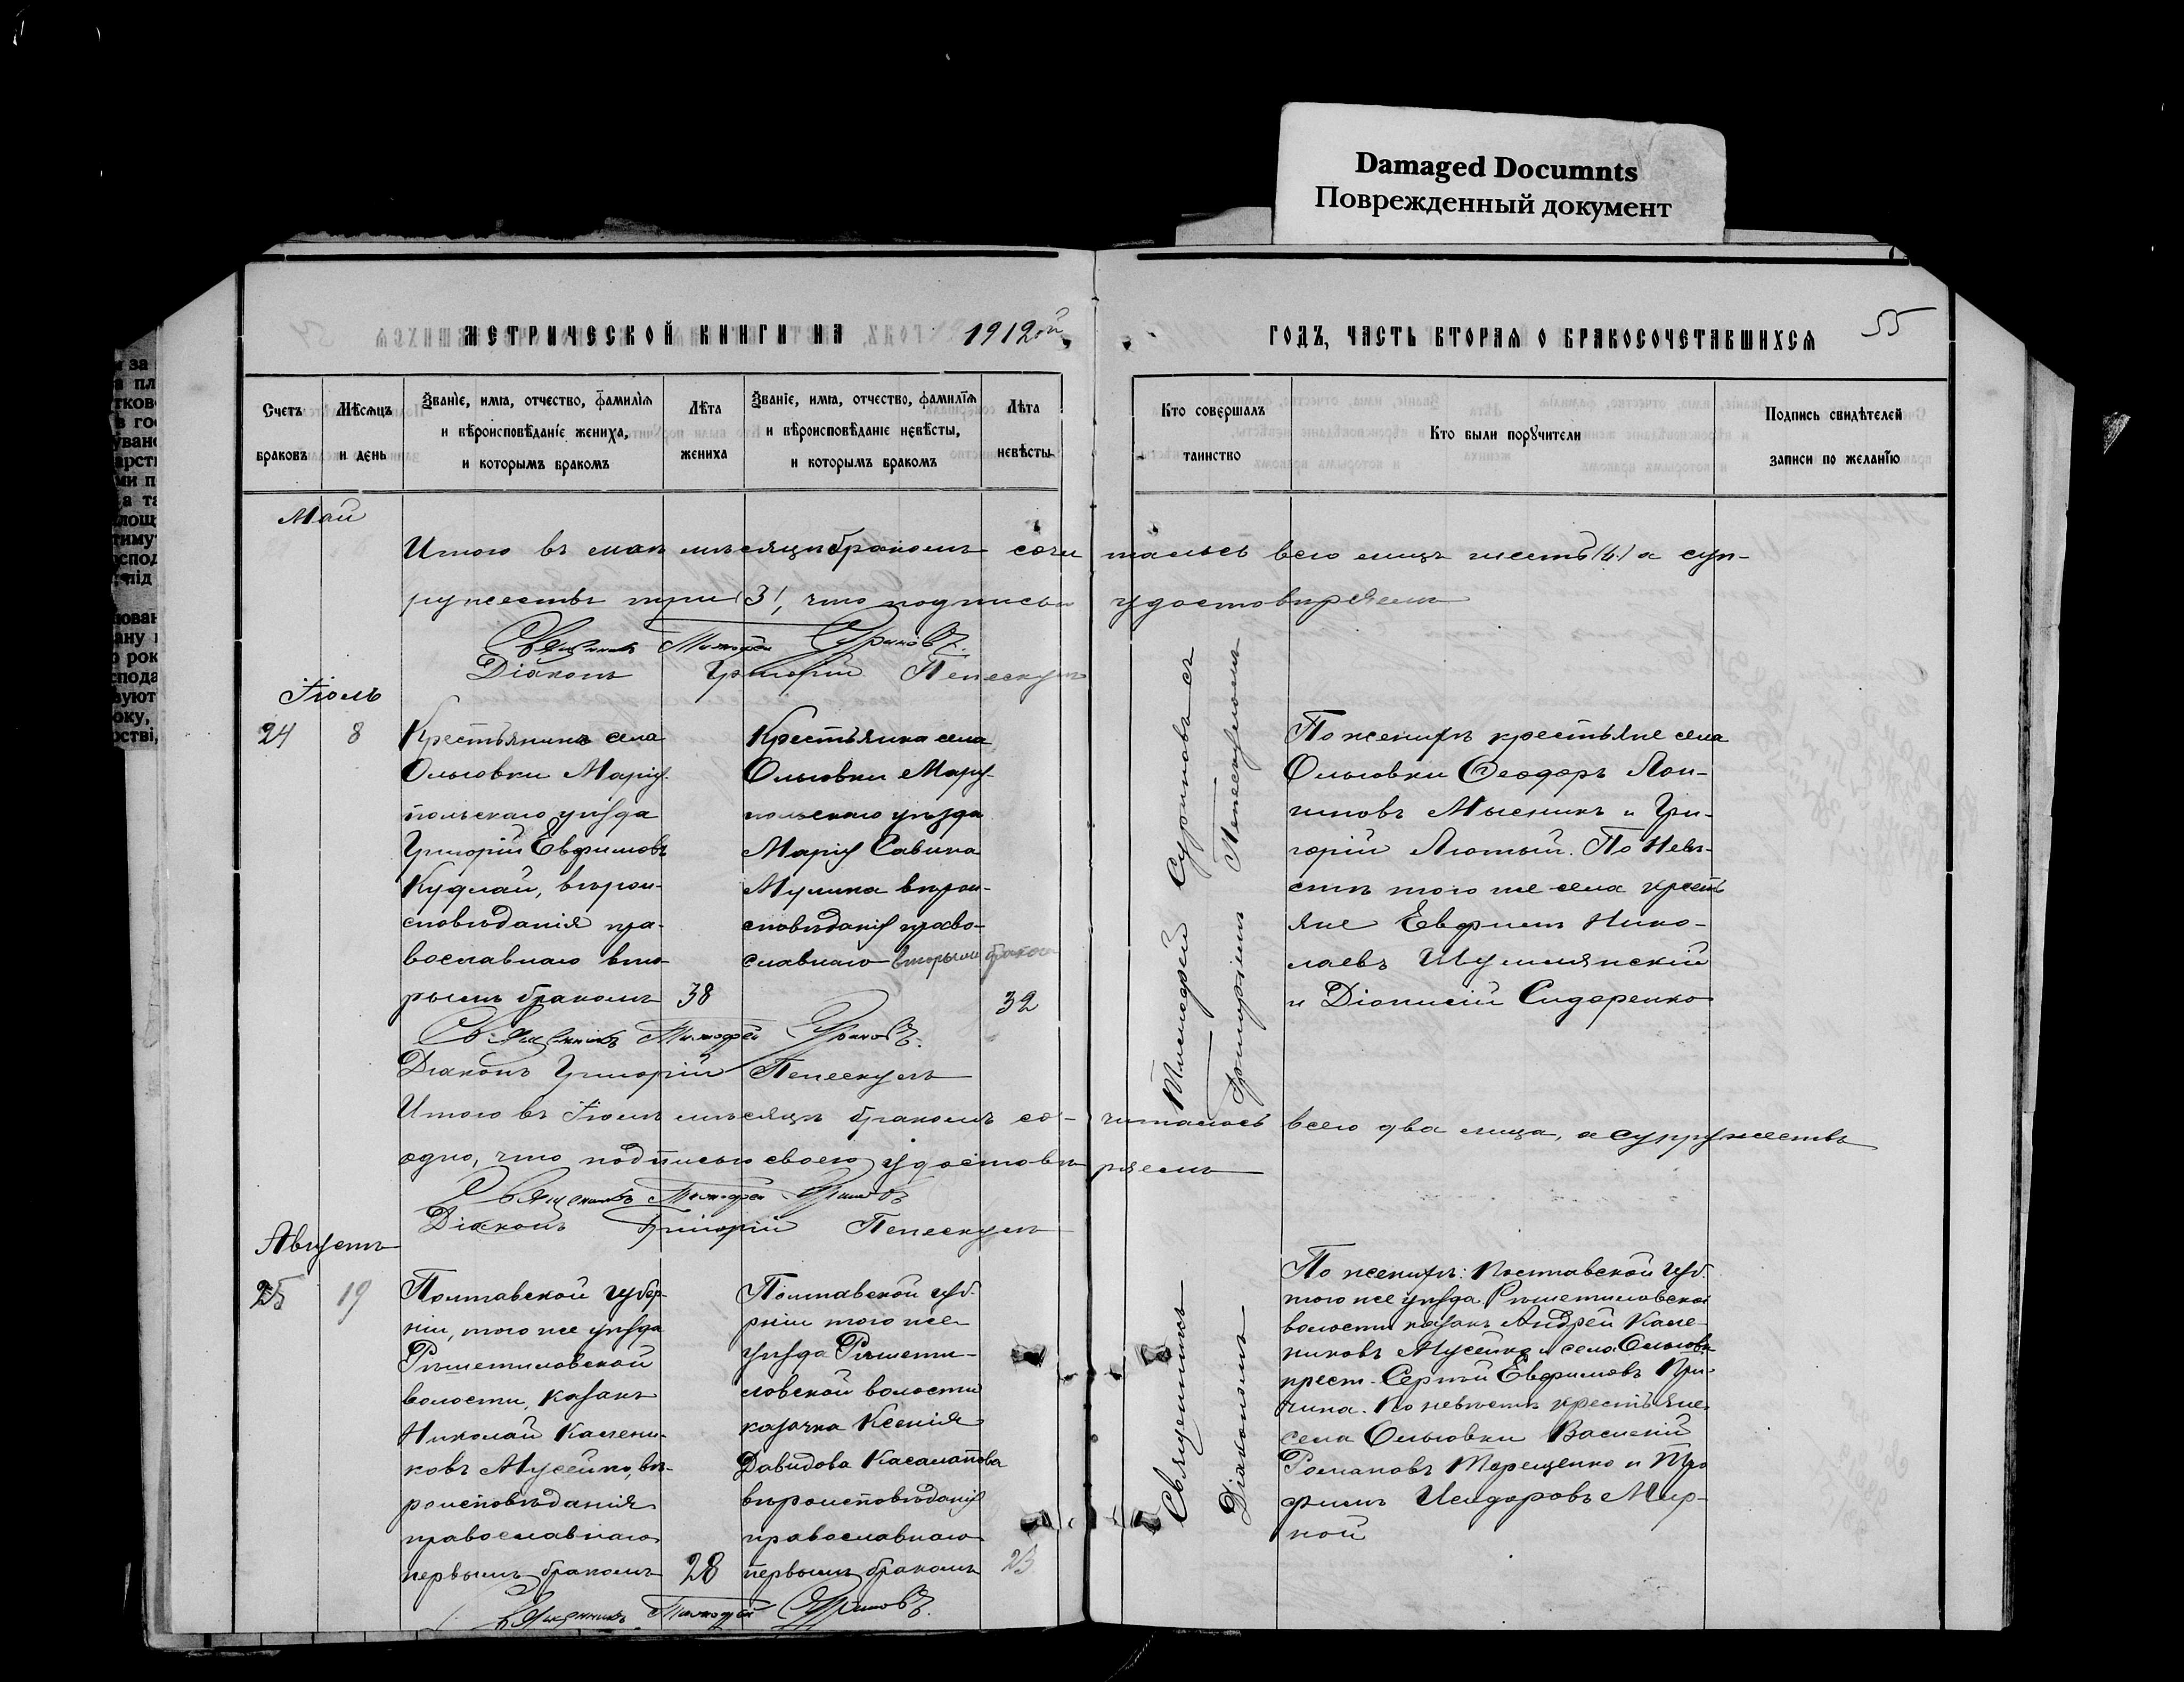 Damaged Documnts
Поврежденный документ
МЕТРИЧЕСКОЙ КНИГИ НА 1912ой
ГОДЪ, ЧАСТЬ ВТОРАЯ О БРАКОСОЧЕТАВШИХСЯ
55
Счетъ
браковъ
Мѣсяцъ
и день
Званіе, имя, отчество, фамилія
и вѣроисповѣданіе жениха,
и которымъ бракомъ
Лѣта
жениха
Званіе, имя, отчество, фамилія
и вѣроисповѣданіе невѣсты,
и которымъ бракомъ
Лѣта
невѣсты
Кто совершалъ
таинство
Кто были поручители
Подпись свидѣтелей
записи по желанію
Май
Итого въ маѣ мѣсяцѣ бракомъ сочи талось всего лицъ шесть (6) а суп-
ружествъ три (3), что подписью удостовѣряемъ
Священникъ Тимофей
Діаконъ Григорій Пепескулъ
Іюль
24
8
Крестьянинъ села
Ольговки Маріу
польскаго уѣзда
Григорій Евфимовъ
Кудлай, вѣрои-
сповѣданія пра-
вославнаго вто-
рымъ бракомъ
38
Крестьянка села
Ольговки Маріу-
польскаго уѣзда
Марія Савина
вѣрои-
сповѣданія право-
славнаго вторымъ бракомъ
32
Тимофей Суриновъ съ
Григоріемъ Пепескуломъ
По женихѣ крестьяне села
Ольговки Ѳеодоръ Лон-
гиновъ Мысникъ и Гри-
горій Лютый. По Невѣ-
стѣ того же села кресть
яне Евфимъ Нико-
лаевъ Шумлянскій
и Діонисій Сидоренко
Священникъ Тимофей
Діаконъ Григорій Пепескулъ
Итого въ Іюлѣ мѣсяцѣ бракомъ со- читалось всего два лица, а супружествъ
одно, что подписью своею удостовѣ ряемъ
Священникъ Тимофей
Діаконъ Григорій Пепескулъ
Августъ
25
19
Полтавской губер-
ніи, того же уѣзда
Рѣшетиловской
волости, казакъ
Николай Калени-
ковъ Мусейко, вѣ-
роисповѣданія
православнаго
первымъ бракомъ
28
Полтавской губ.
рніи того же
уѣзда Рѣшети-
ловской волости
казачка Ксенія
Давидова
вѣроисповѣданія
православнаго
первымъ бракомъ
23
Священникъ
Діакономъ
По женихѣ: Полтавской губ.
того же уѣзда Рѣшетиловской
волости казакъ Андрей Кале-
никовъ Мусейко и села Ольговки
крест. Сергѣй Евфимовъ При-
чина. По невѣстѣ крестьяне
села Ольговки Василій
Романовъ Терещенко и Тро
фимъ Исидоровъ Мир-
ной
Священникъ Тимофей